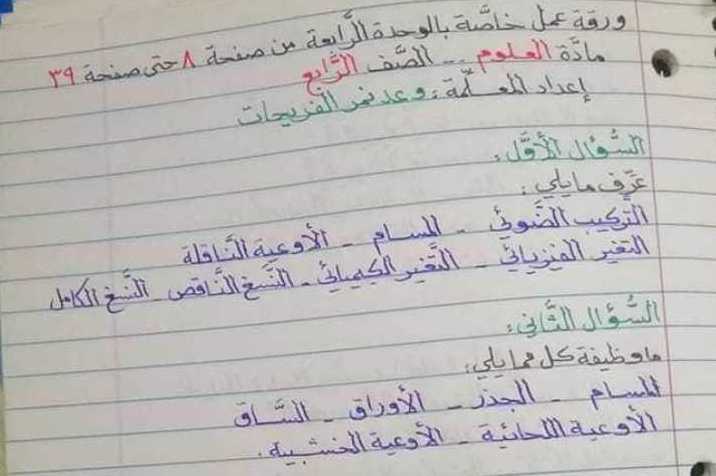 ورقة عمل خاصَّة بالوحدة الرَّابعة من صفحة ٨ حتى صفحة ٣٩
مادَّة العلوم -- الصَّف الرَّابع
إعداد المعلّمة: وعد نمر الفريحات
السُّؤال الأوَّل:
عرِّف ما يلي:
التَّركيب الضَّوئي - المسام - الأوعية النَّاقلة
التغير الفيزيائي - التَّغير الكيميائي - النَّسغ النَّاقص - النَّسغ الكامل
السُّؤال الثَّاني:
ما وظيفة كل مما يلي:
المسام - الجذر - الأوراق - السَّاق
الأوعية اللحائية - الأوعية الخشبية.